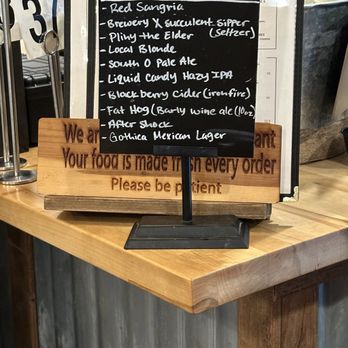 - Red Sangria
- Brewery X Succulent Sipper
(Seltzer)
- Pliny the Elder
- Local Blonde
- South O Pale Ale
- Liquid Candy Hazy IPA
- Blackberry Cider (ironfire)
- Fat Hog (Barly wine ale (10oz)
- After Shock
- Gothica Mexican Lager
We a ant
Your food is made fresh every order
Please be patient
3